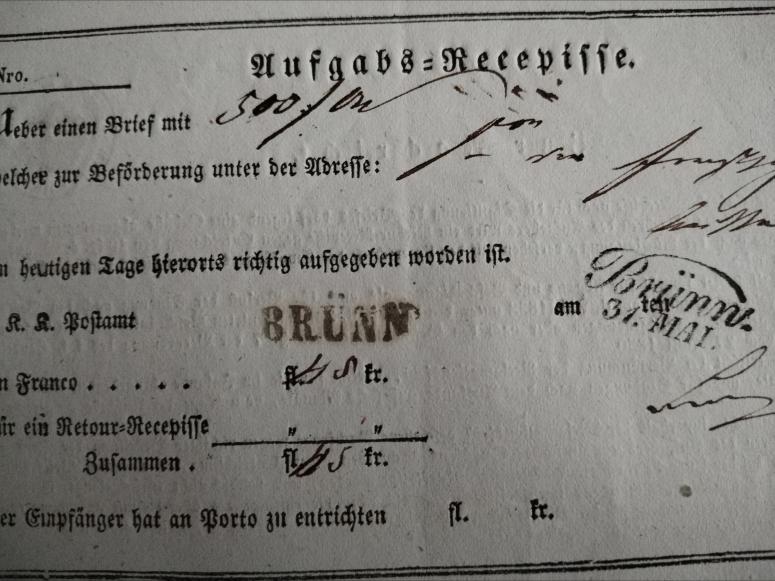 Aufgabs-Recepisse.
Nro.
Ueber einen Brief mit 500 f
welcher zur Beförderung unter der Adresse:
heutigen Tage hierorts richtig aufgegeben worden ist.
K. K. Postamt BRÜNN am ten Brünn.
31. MAI.
n Franco . . . . . fl. 48 kr.
ür ein Retour-Recepisse " "
Zusammen . fl. 48 kr.
er Empfänger hat an Porto zu entrichten fl. kr.